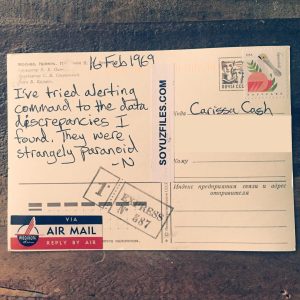 16 Feb 1969
I've tried alerting
command to the data
discrepancies I
found. They were
strangely paranoid
-N
SOYUZFILES.COM
ПОЧТА СССР
Carissa Cash
Куда
Кому
Индекс предприятия связи и адрес
отправителя
1
EXPRESS
Nº 587
VIA
AIR MAIL
REPLY BY AIR